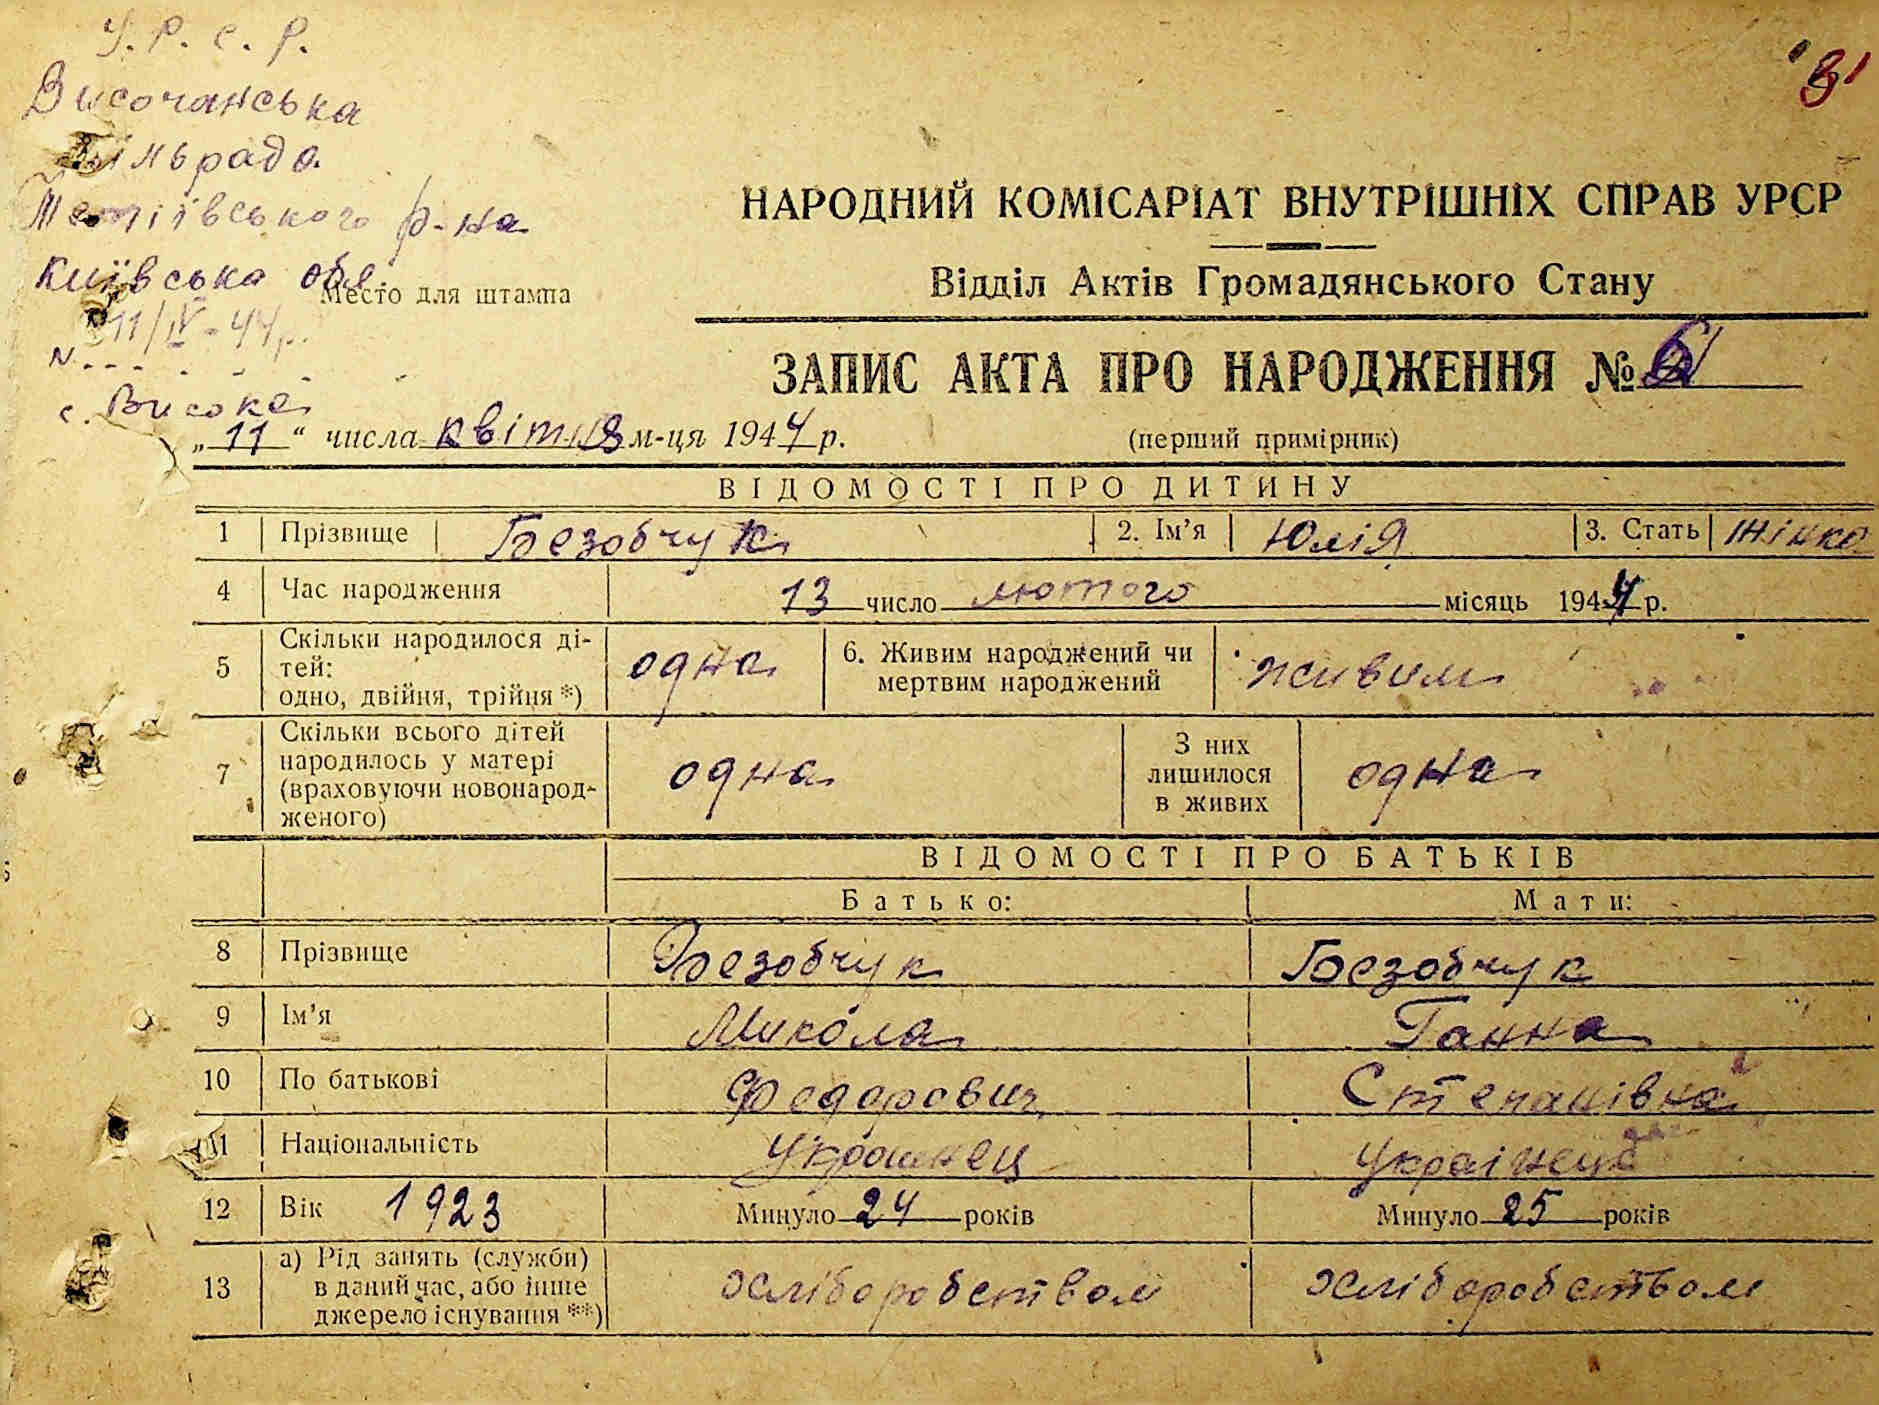 У. Р. С. Р.
Височанська
сільрада
Тетіївського р-на
Київська обл.
Место для штампа
11/IV-44р.
N
с. Висока
НАРОДНИЙ КОМІСАРІАТ ВНУТРІШНІХ СПРАВ УРСР
Відділ Актів Громадянського Стану
ЗАПИС АКТА ПРО НАРОДЖЕННЯ №
„11“ числа квітня м-ця 1944 р. (перший примірник)
ВІДОМОСТІ ПРО ДИТИНУ
1 Прізвище Безобчук 2. Ім’я Юлія 3. Стать жінка
4 Час народження 13 число лютого місяць 1944 р.
5 Скільки народилося ді-
тей:
одно, двійня, трійця *) одна 6. Живим народжений чи
мертвим народжений живим
7 Скільки всього дітей
народилось у матері
(враховуючи новонарод-
женого) одна З них
лишилося
в живих одна
ВІДОМОСТІ ПРО БАТЬКІВ
Батько: Мати:
8 Прізвище Безобчук Безобчук
9 Ім’я Микола Ганна
10 По батькові Федорович Степанівна
11 Національність Украинец
12 Вік 1923 Минуло 24 років Минуло 25 років
13 а) Рід занять (служби)
в даний час, або інше
джерело існування **) хліборобством хліборобством